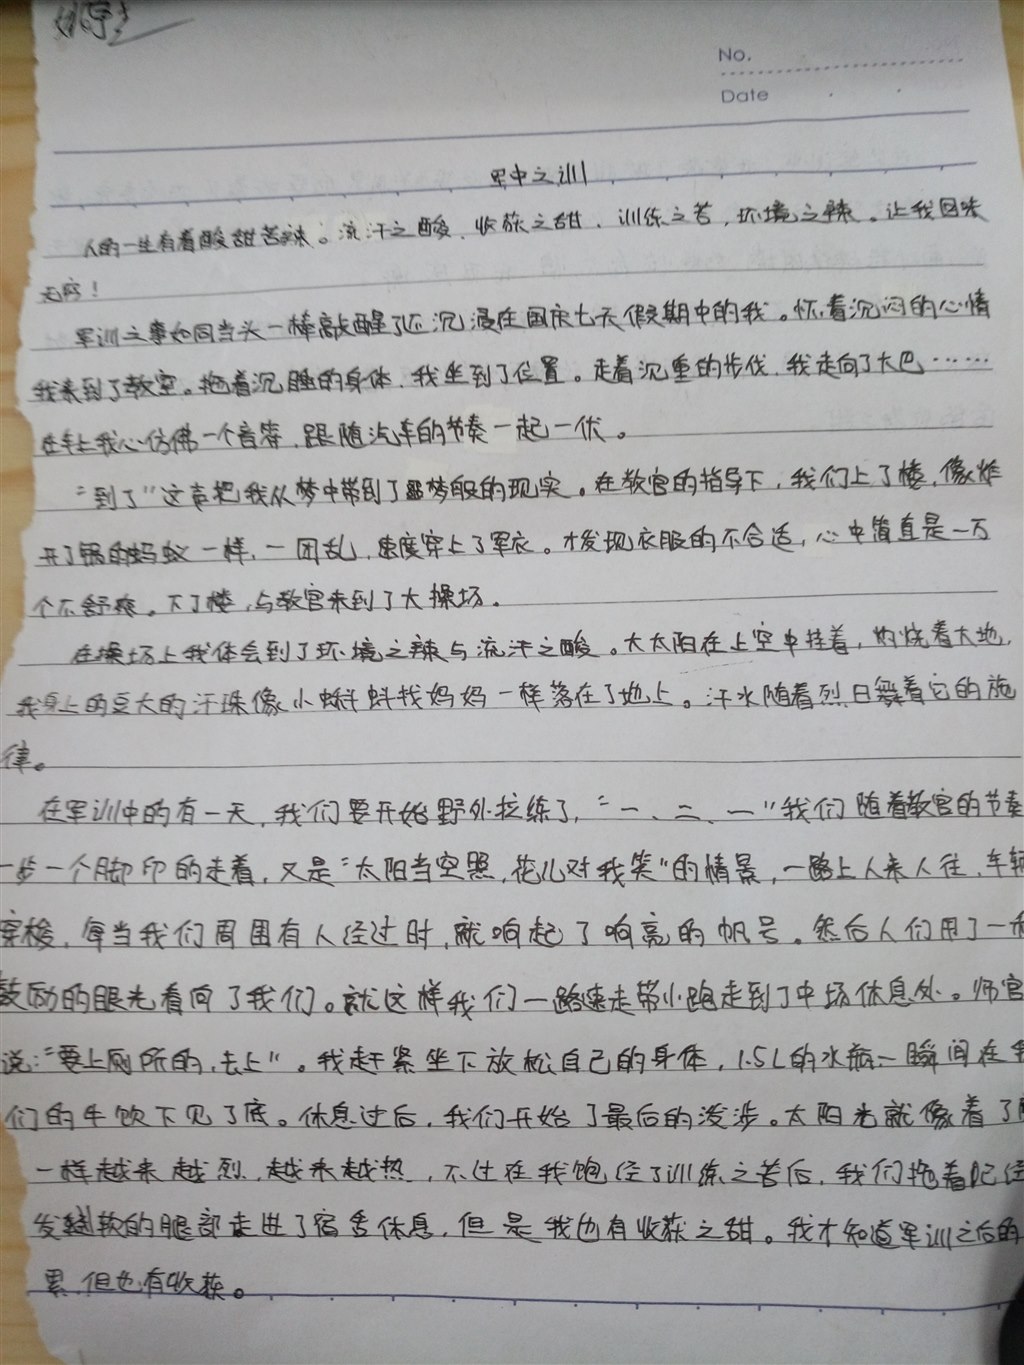 No.
Date
军中之训
人的一生有着酸甜苦辣。流汗之酸、收获之甜、训练之苦、环境之辣。让我回味
无穷！
军训之事如同当头一棒敲醒了还沉浸在国庆七天假期中的我。怀着沉闷的心情
我来到了教室。拖着沉睡的身体，我坐到了位置。走着沉重的步伐，我走向了大巴……
在车上我心仿佛一个音符，跟随汽车的节奏一起一伏。
“到了”这声把我从梦中带到了梦般的现实。在教官的指导下，我们上了楼，像炸
开了锅的蚂蚁一样，一团乱，速度穿上了军衣。才发现衣服的不合适，心中简直是一万
个不舒爽。下了楼，与教官来到了大操场。
在操场上我体会到了环境之辣与流汗之酸。大太阳在上空中挂着，灼烧着大地，
我身上的豆大的汗珠像小蝌蚪找妈妈一样落在了地上。汗水随着烈日舞着它的旋
律。
在军训中的有一天，我们要开始野外拉练了，“一、二、一”我们随着教官的节奏
一步一个脚印的走着，又是“太阳当空照，花儿对我笑”的情景，一路上人来人往，车辆
穿梭，每当我们周围有人经过时，就响起了响亮的帆号。然后人们用了一种
鼓励的眼光看向了我们。就这样我们一路速走带小跑走到了中场休息处。师官
说：“要上厕所的，去上”。我赶紧坐下放松自己的身体，1.5L的水瓶一瞬间在我
们的牛饮下见了底。休息过后，我们开始了最后的跋涉。太阳光就像着了
一样越来越烈，越来越热，不过在我饱经了训练之苦后，我们拖着已经
发软的腿部走进了宿舍休息，但是我也有收获之甜。我才知道军训之后的
累，但也有收获。